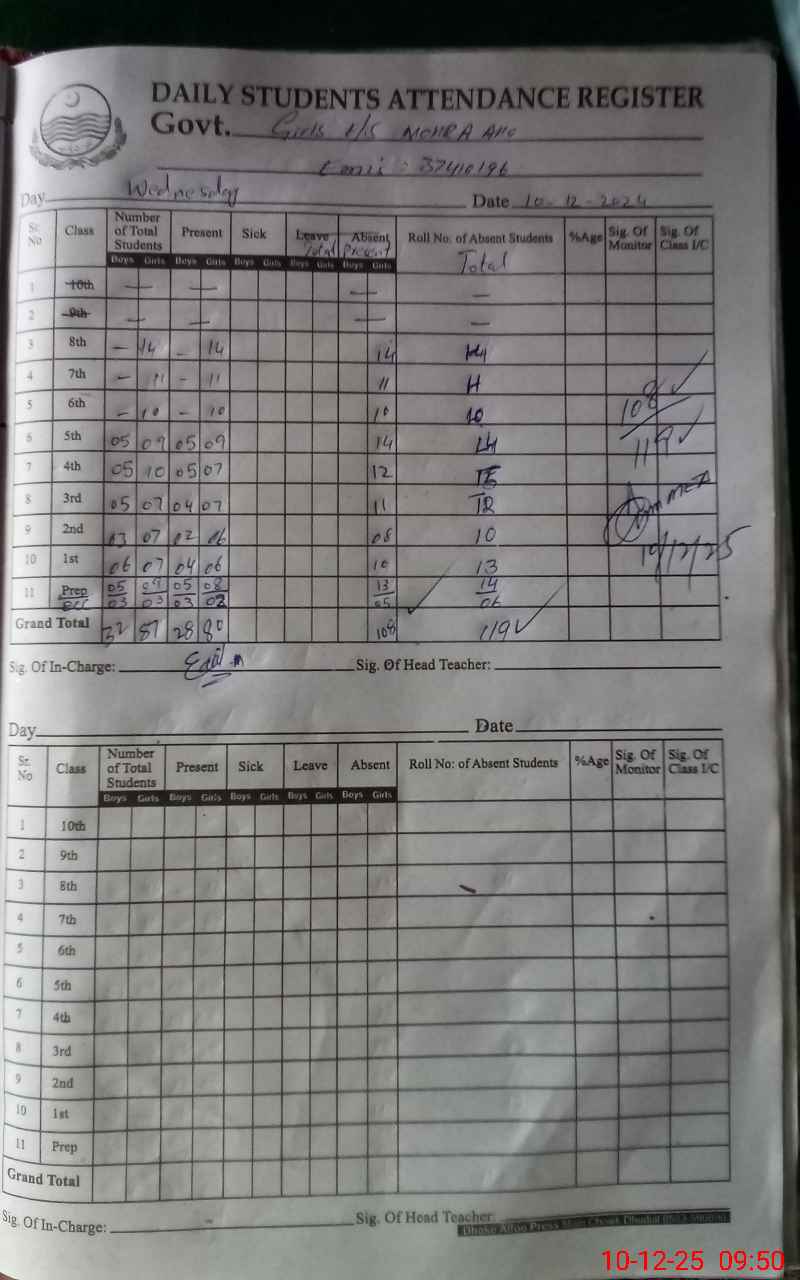 DAILY STUDENTS ATTENDANCE REGISTER
Govt. Girls E/S MOHRA
Emis : 37410196
Day Wednesday Date 10-12-2024
Sr. No Class Number of Total Students Present Sick Leave Absent Roll No. of Absent Students %Age Sig. Of Monitor Sig. Of Class I/C
Total Present Total
Boys Girls Boys Girls Boys Girls Boys Girls Boys Girls
1 10th — — — —
2 9th — — — —
3 8th – 14 – 14 14 14
4 7th – 11 – 11 11 11
5 6th – 10 – 10 10 10
108
6 5th 05 09 05 09 14 14
119
7 4th 05 10 05 07 12 15
8 3rd 05 07 04 07 11 12
9 2nd 03 07 02 06 08 10
10/12/25
10 1st 06 07 04 06 10 13
11 Prep 05 09 05 08 13 14
ECC 03 03 03 02 05 06
Grand Total 32 87 28 80 108 119
Sig. Of In-Charge: Sig. Of Head Teacher:
Day Date
Sr. No Class Number of Total Students Present Sick Leave Absent Roll No: of Absent Students %Age Sig. Of Monitor Sig. Of Class I/C
Boys Girls Boys Girls Boys Girls Boys Girls Boys Girls
1 10th
2 9th
3 8th
4 7th
5 6th
6 5th
7 4th
8 3rd
9 2nd
10 1st
11 Prep
Grand Total
Sig. Of In-Charge: Sig. Of Head Teacher:
10-12-25 09:50